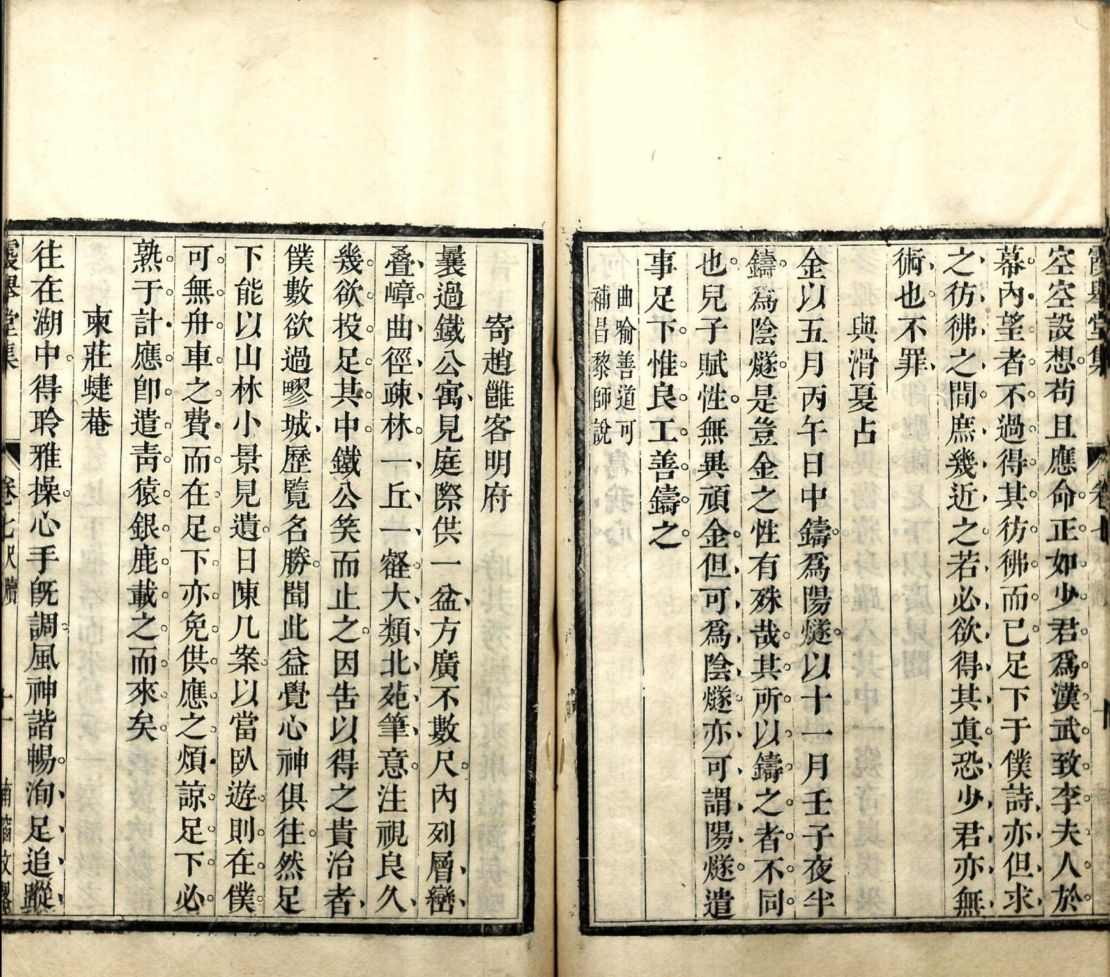 霞舉堂集
卷七
十
空空設想苟且應命正如少君爲漢武致李夫人於
幕內望者不過得其彷彿而已足下于僕詩亦但求
之彷彿之間庶幾近之若必欲得其眞恐少君亦無
術也不罪
與滑夏占
金以五月丙午日中鑄爲陽燧以十一月壬子夜半
鑄爲陰燧是豈金之性有殊哉其所以鑄之者不同
也兒子賦性無異頑金但可爲陰燧亦可謂陽燧遣
事足下惟良工善鑄之
曲喻善道可
補昌黎師說
寄趙雝客明府
曩過鐵公寓見庭際供一盆方廣不數尺內列層巒
叠嶂曲徑疎林一丘一壑大類北苑筆意注視良久
幾欲投足其中鐵公笑而止之因吿以得之貴治者
僕數欲過嘐城歷覽名勝聞此益覺心神俱往然足
下能以山林小景見遺日陳几案以當臥遊則在僕
可無舟車之費而在足下亦免供應之煩諒足下必
熟于計應卽遣靑猿銀鹿載之而來矣
柬莊蝶菴
往在湖中得聆雅操心手旣調風神諧暢洵足追蹤
霞舉堂集
卷七尺牘
十一